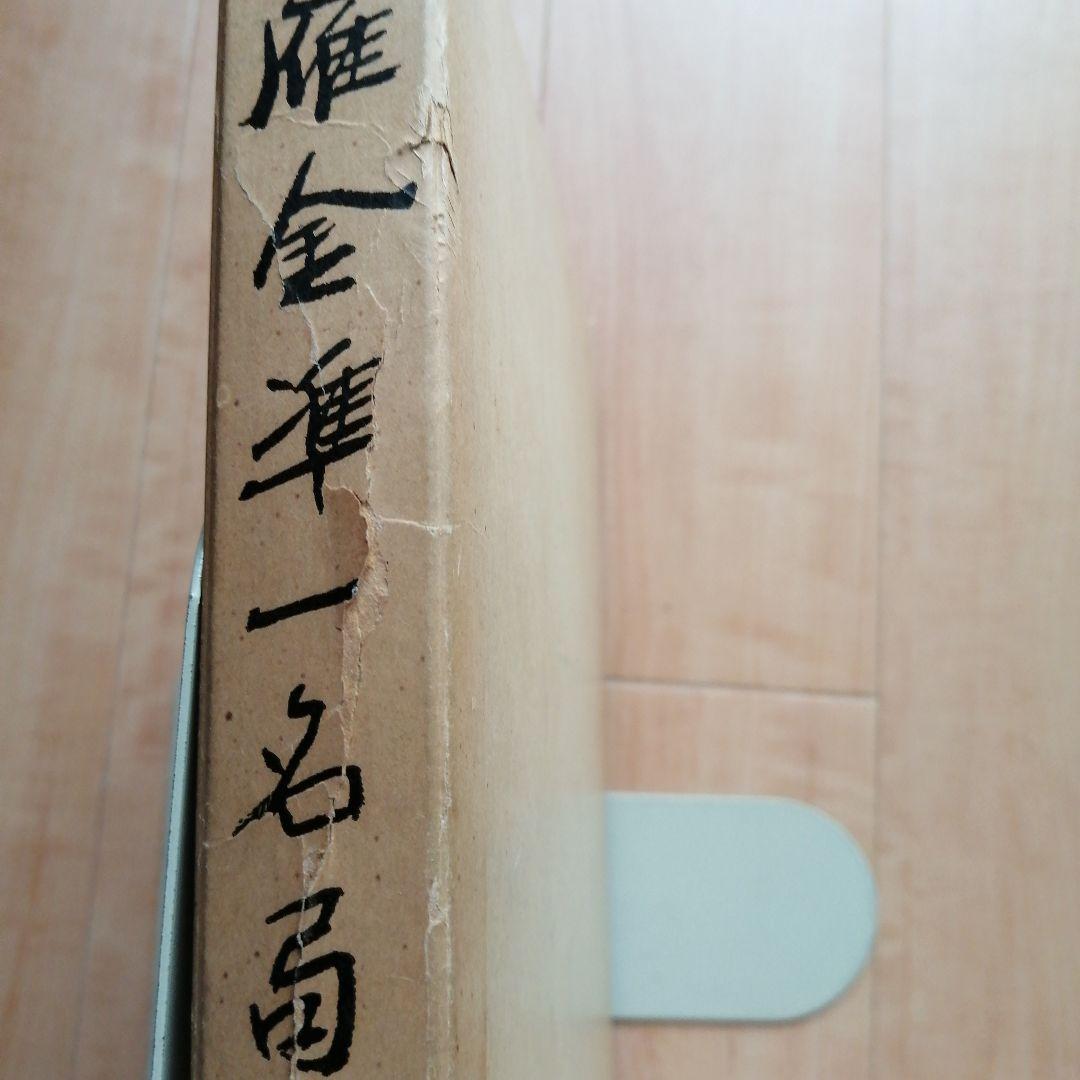 雁金準一名局